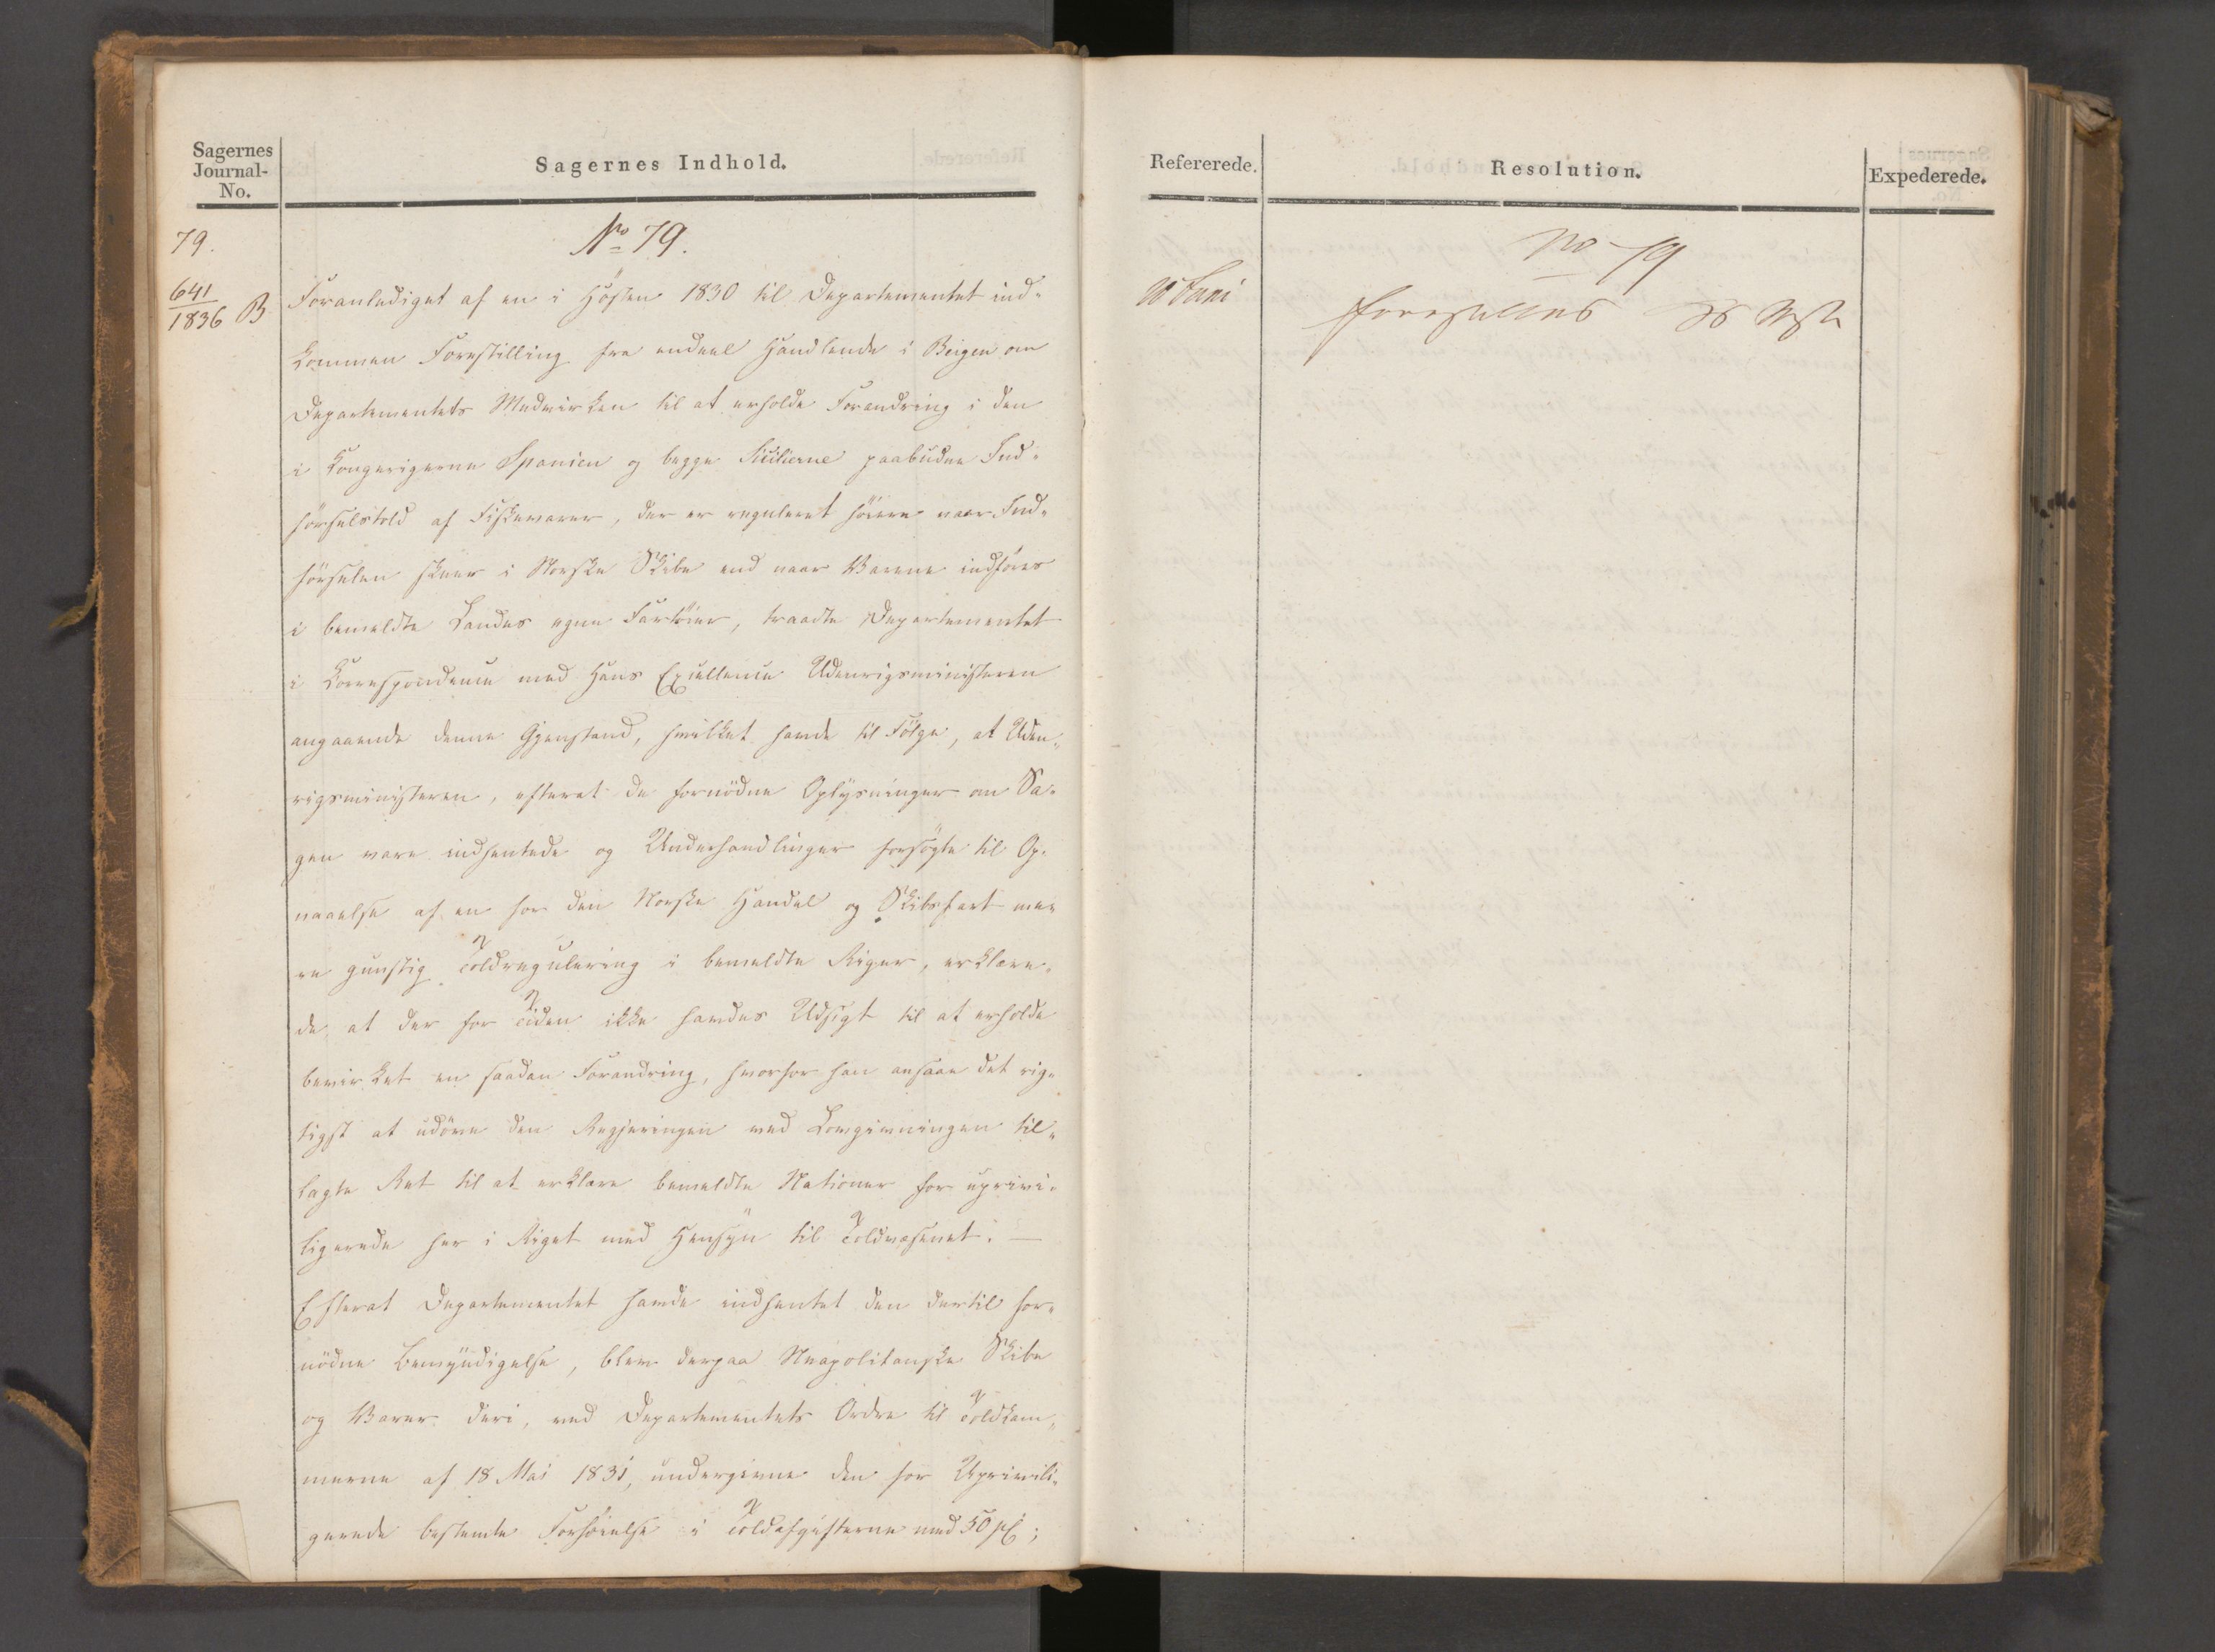 Sagernes
Journal-
No.
Sagernes Indhold.
79.
No 79.
641
1836 B
Foranlediget af en i Hösten 1830 til Departementet ind-
kommen Forestilling fra endeel Handlende i Bergen om
Departementets Medvirken til at erholde Forandring i den
i Kongerigerne Spanien og begge Sicilierne paabudne Ind-
førselstold af Fiskevarer, der er reguleret höiere naar Ind-
förselen skeer i Norske Skibe end naar Varerne indføres
i bemeldte Landes egne Fartöier, traadte Departementet
i Correspondence med Hans Excellence Udenrigsministeren
angaaende denne Gjenstand, hvilket havde til Fölge, at Uden-
rigsministeren, efterat de fornödne Oplysninger om Sa-
gen vare indhentede og Underhandlinger forsögte til Op-
naaelse af en for den Norske Handel og Skibsfart me-
re gunstig Toldregulering i bemeldte Riger, erklære-
de, at der for Tiden ikke havdes Udsigt til at erholde
bevirket en saadan Forandring, hvorfor han ansaae det rig-
tigst at udöve den Regjeringen ved Lovgivningen til-
lagte Ret til at erklære bemeldte Nationer for uprivi-
ligerede her i Riget med Hensyn til Toldvæsenet. —
Efterat Departementet havde indhentet den dertil for-
nödne Bemyndigelse, blev derpaa Neapolitanske Skibe
og Varer deri, ved Departementets Ordre til Toldkam-
merne af 18 Mai 1831, undergivne den for Uprivili-
gerede bestemte Forhöielse i Toldafgifterne med 50 pC;
Refererede.
Resolution.
Expederede.
No 79
Juni
forestilles